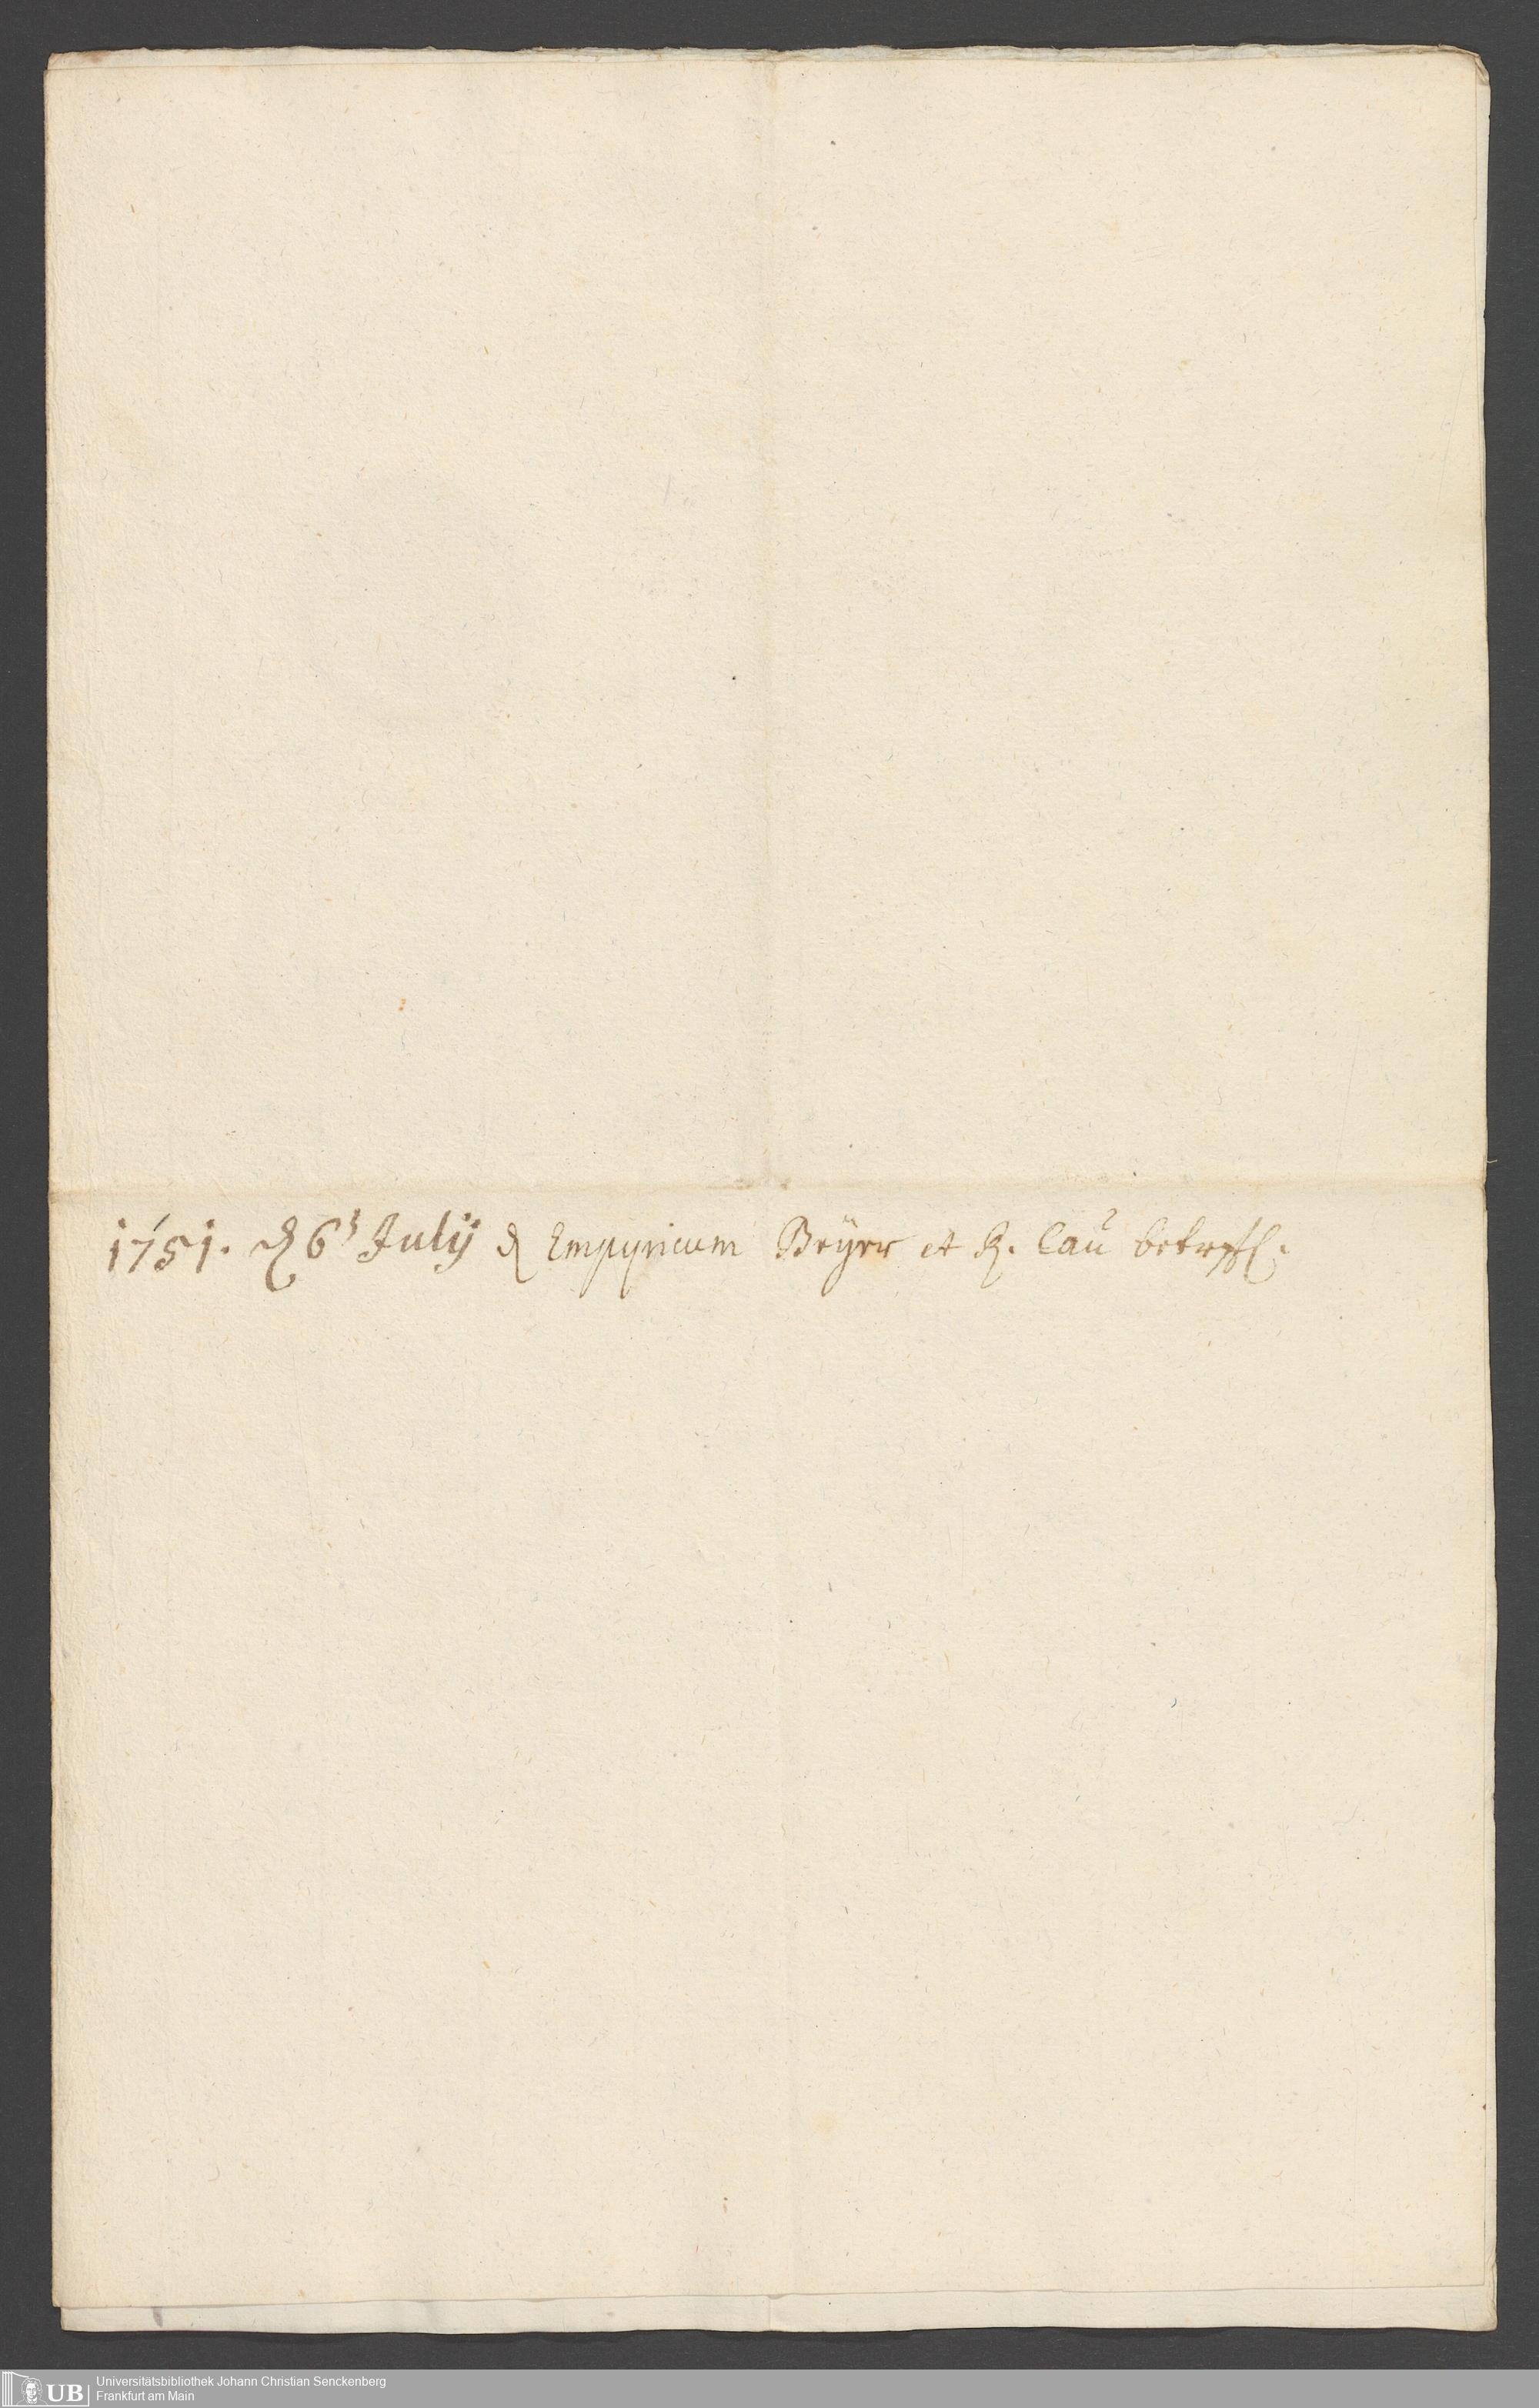 1751. d 6t Julij d Empyricum Beÿer et H. Cau betreffl.
UB
Universitätsbibliothek Johann Christian Senckenberg
Frankfurt am Main